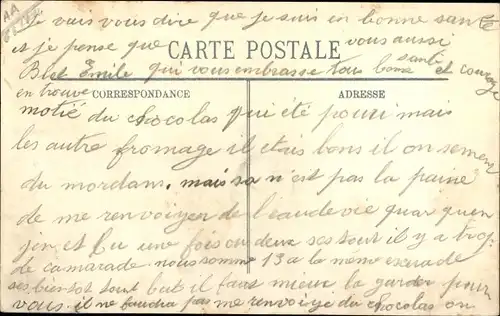 AA
Je vais vous dire que je suis en bonne santé
et je pense que vous aussi
CARTE POSTALE
But Emile qui vous embrasse tous bons santé et courage
en trouve
CORRESPONDANCE
ADRESSE
motié du chocolas qui été pouri mais
les autre fromage il étais bons il on semen
du mordam, mais sa n'est pas la paine
de me renvoiyer de l'eaudevie quar quen
jon et bu une fois ou deux ses tout il y a trop
de camarade nous somme 13 a le meme escuade
ses bientot tout but il faut mieux la garder pour
vous. il ne faudra pas me renvoiye du chocolas on